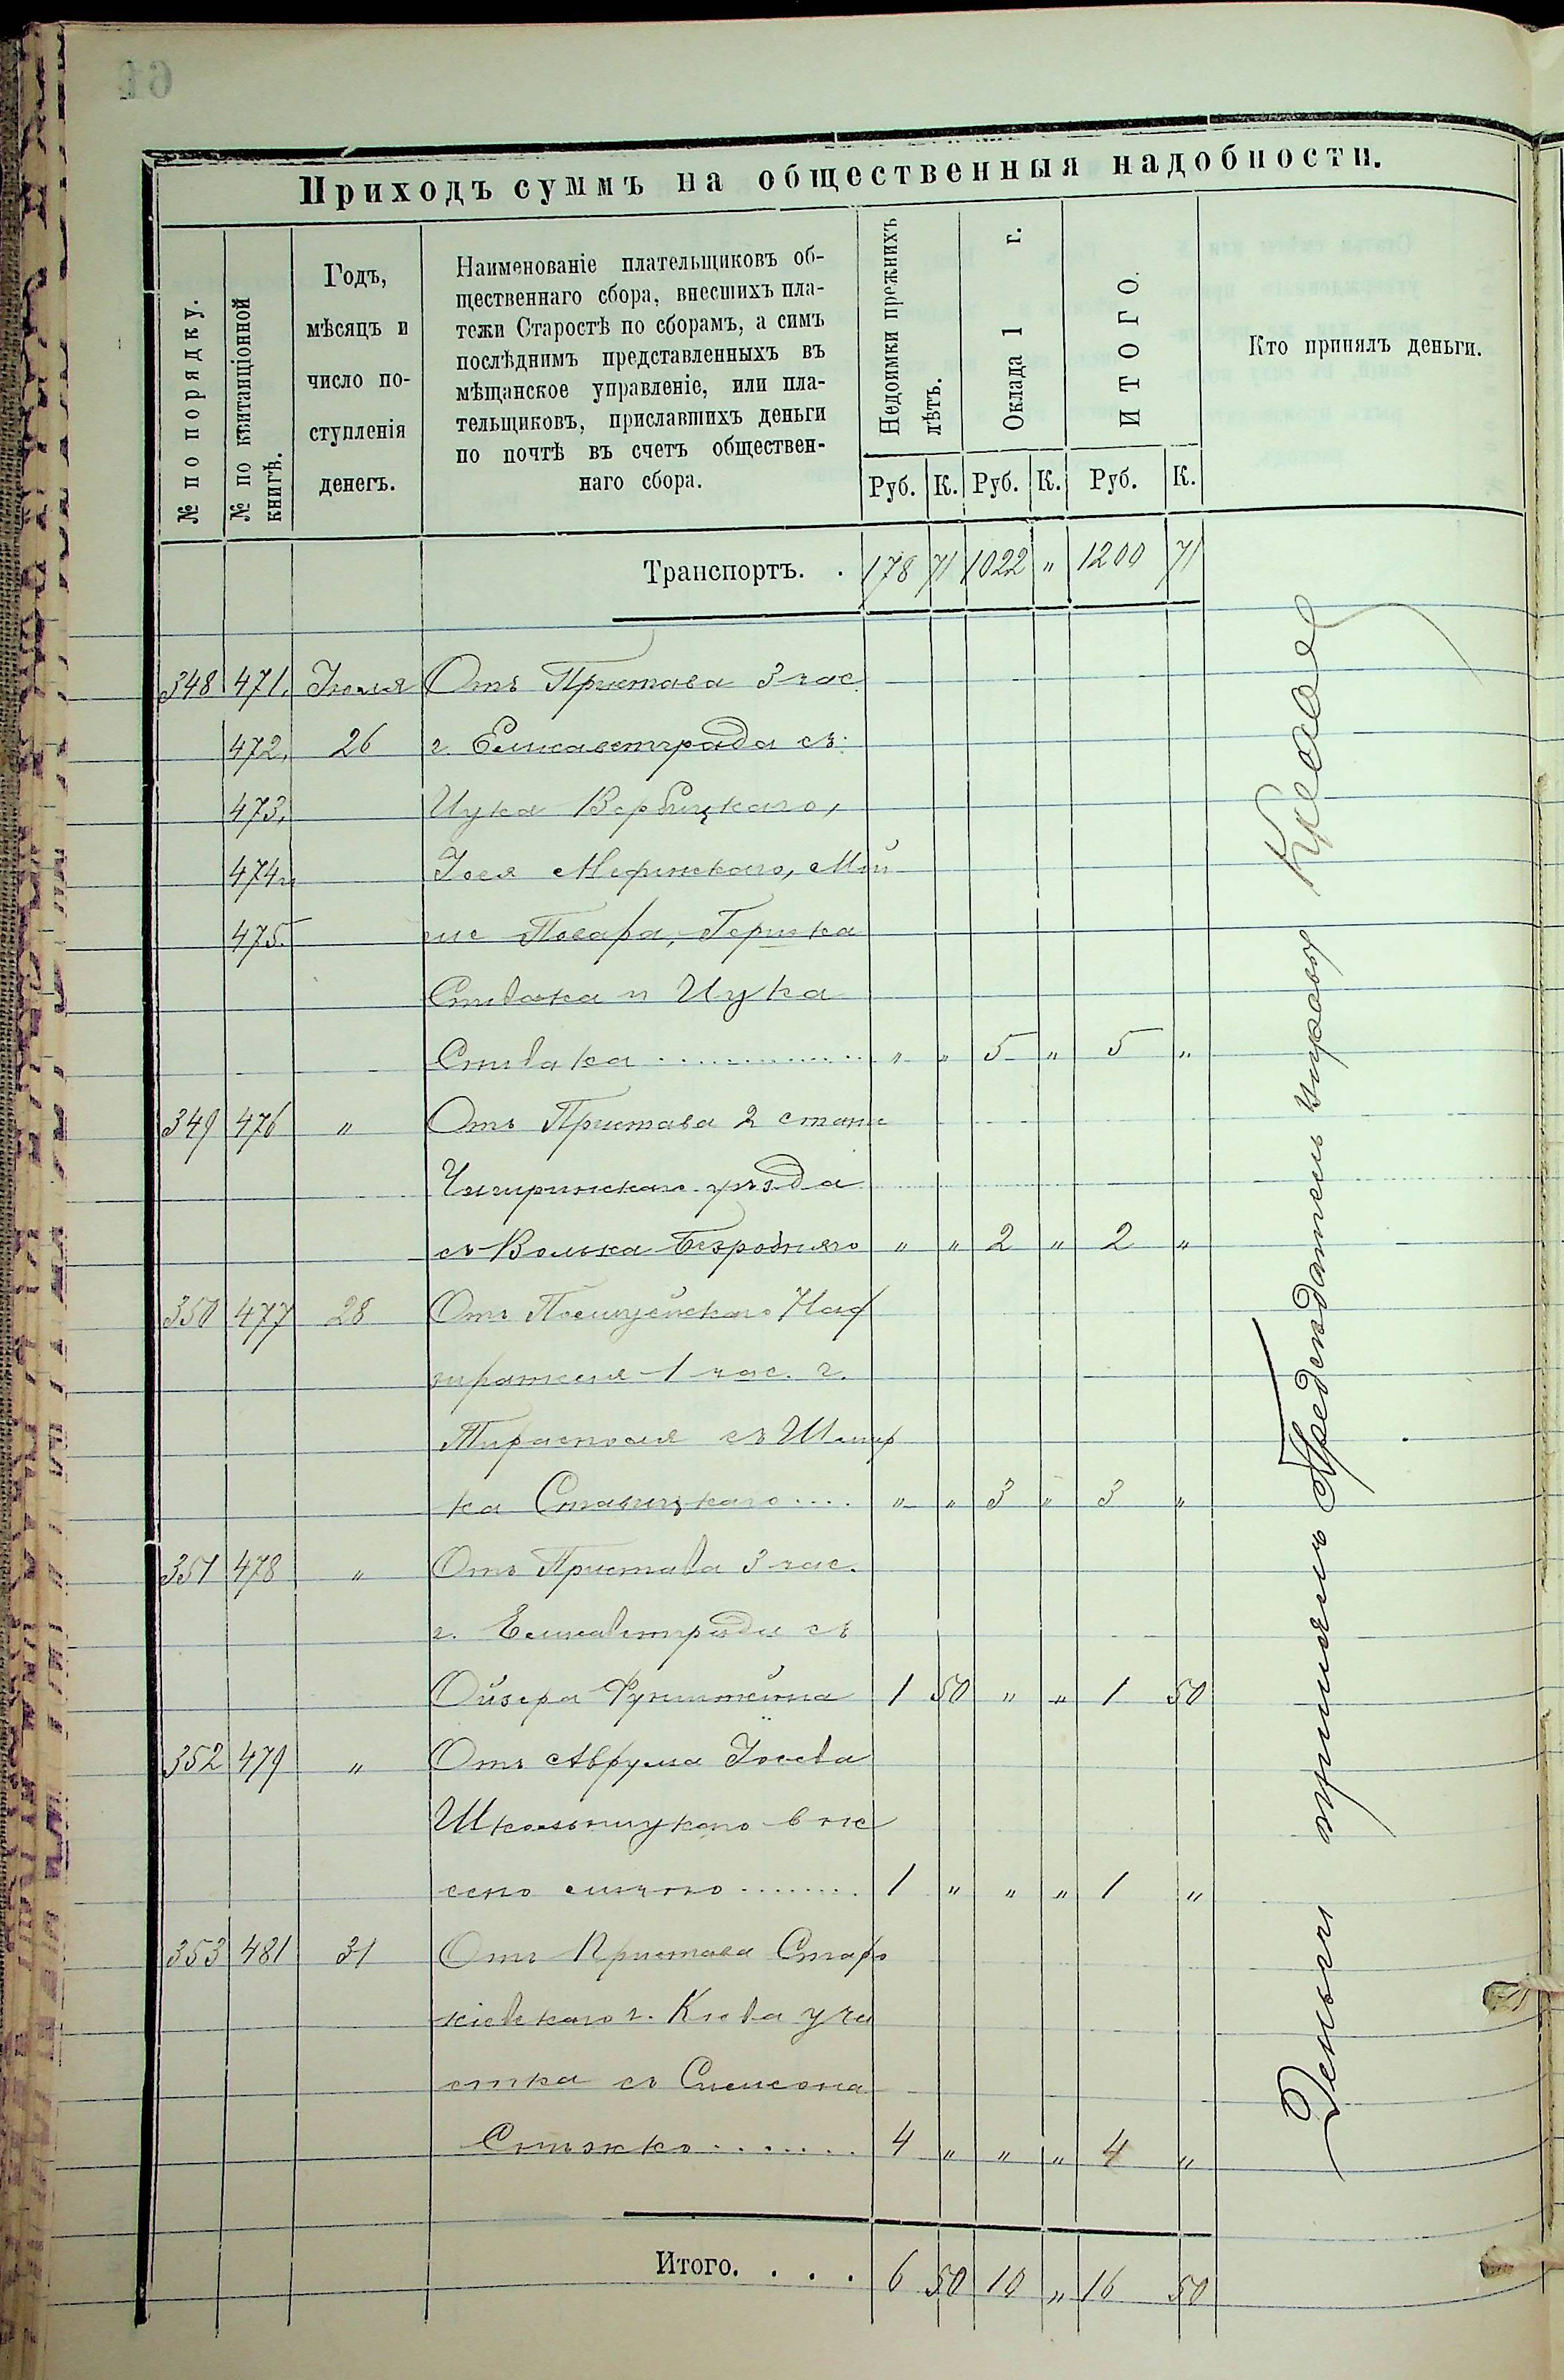 Приходъ суммъ на общественныя надобности.
№ по порядку.
№ по квитанціонной
книгѣ.
Годъ,
мѣсяцъ и
число по-
ступленія
денегъ.
Наименованіе плательщиковъ об-
щественнаго сбора, внесшихъ пла-
тежи Старостѣ по сборамъ, а симъ
послѣднимъ представленныхъ въ
мѣщанское управленіе, или пла-
тельщиковъ, приславшихъ деньги
по почтѣ въ счетъ обществен-
наго сбора.
Недоимки прежнихъ
лѣтъ.
Оклада 1 г.
ИТОГО.
Руб. К. Руб. К. Руб. К.
Кто принялъ деньги.
Транспортъ. . 178 71 1022 " 1200 71
348 471, Іюля Отъ Пристава 3 час.
472, 26 г. Елисаветграда съ:
473, Ицка Вербицкаго,
474 и Іося
475.
Спивака и Ицка
Спивака " " 5 " 5 "
349 476 " Отъ Пристава 2 стана
Чигиринскаго уѣзда
съ Волька Безродняго " " 2 " 2 "
350 477 28 Отъ Полицейскаго Над
зирателя 1 час. г.
Тирасполя съ Шмер
ка Ставицкаго .... " " 3 " 3 "
351 478 " Отъ Пристава 3 час.
г. Елисаветграда съ
Ойзера 1 50 " " 1 50
352 479 " Отъ Аврума Іосева
Школьницкаго вне
сено лично 1 " " " 1 "
353 481 31 Отъ Пристава Старо
кіевскаго г. Кіева уча
стка съ Симсона
4 " " " 4 "
Итого. . . . 6 50 10 " 16 50
Деньги принялъ Предсѣдатель Управы